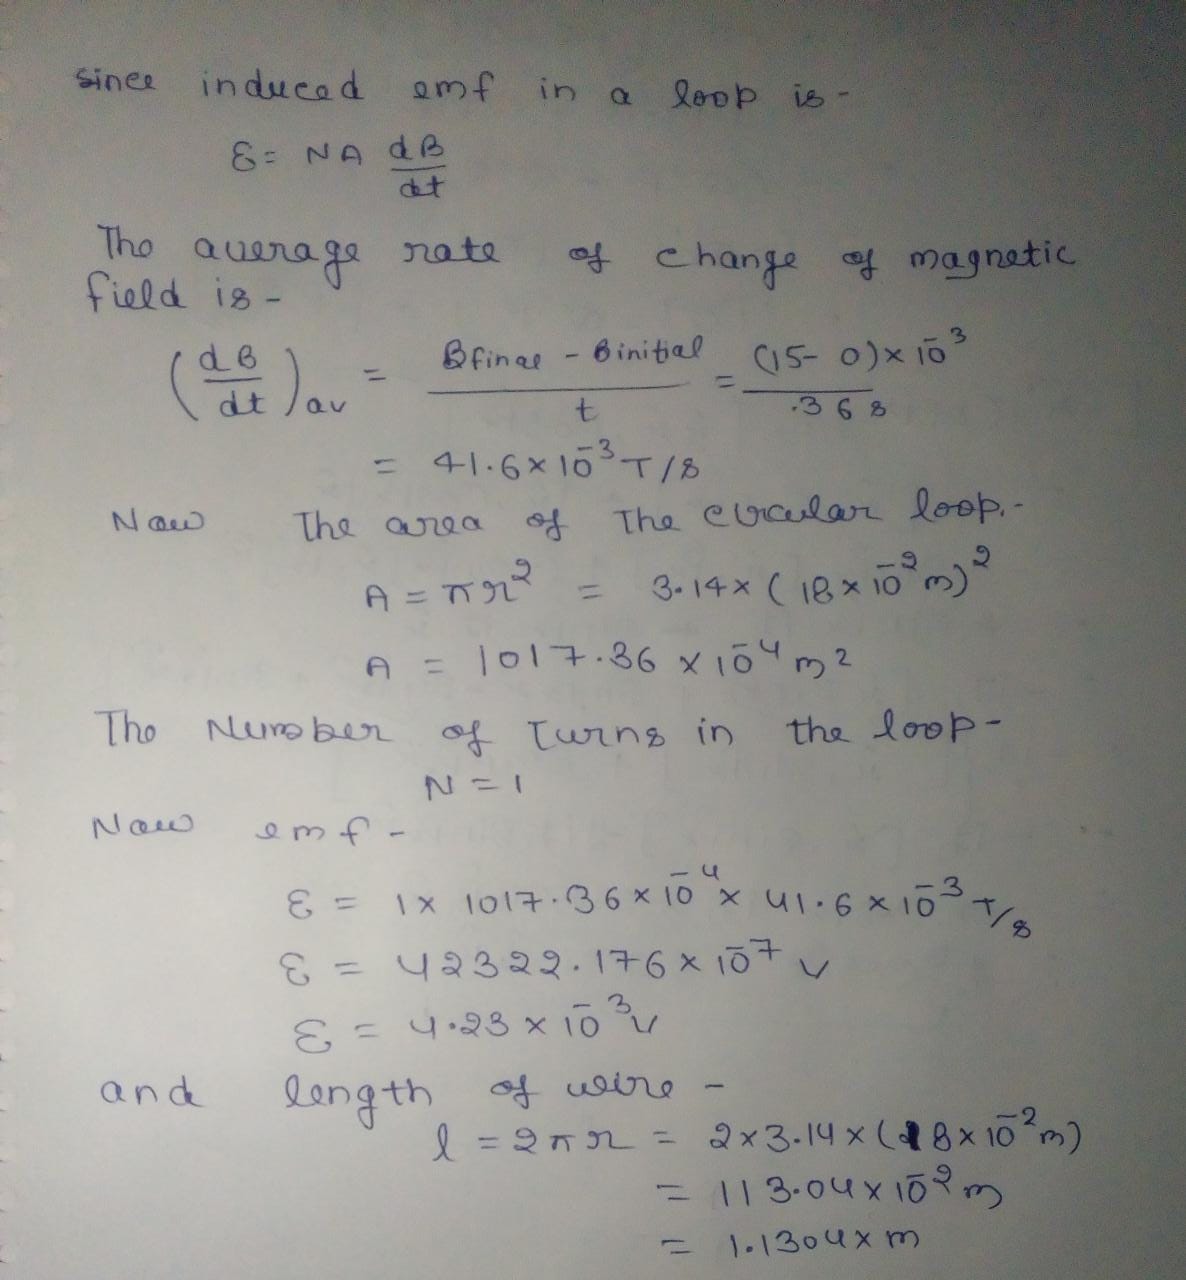 since induced emf in a loop is -
ε = NA dB/dt
The average rate of change of magnetic
field is -
(dB/dt)av = Bfinal - Binitial / t = (15-0)×10⁻³ / .36 s
= 41.6×10⁻³ T/s
Now The area of The circular loop.-
A = πr² = 3.14×(18×10⁻²m)²
A = 1017.36 ×10⁻⁴ m²
The Number of Turns in the loop-
N = 1
Now emf -
ε = 1× 1017.36×10⁻⁴× 41.6×10⁻³ T/s
ε = 42322.176×10⁻⁷ v
ε = 4.23×10⁻³ v
and length of wire -
l = 2πr = 2×3.14×(18×10⁻²m)
= 113.04×10⁻² m
= 1.1304× m